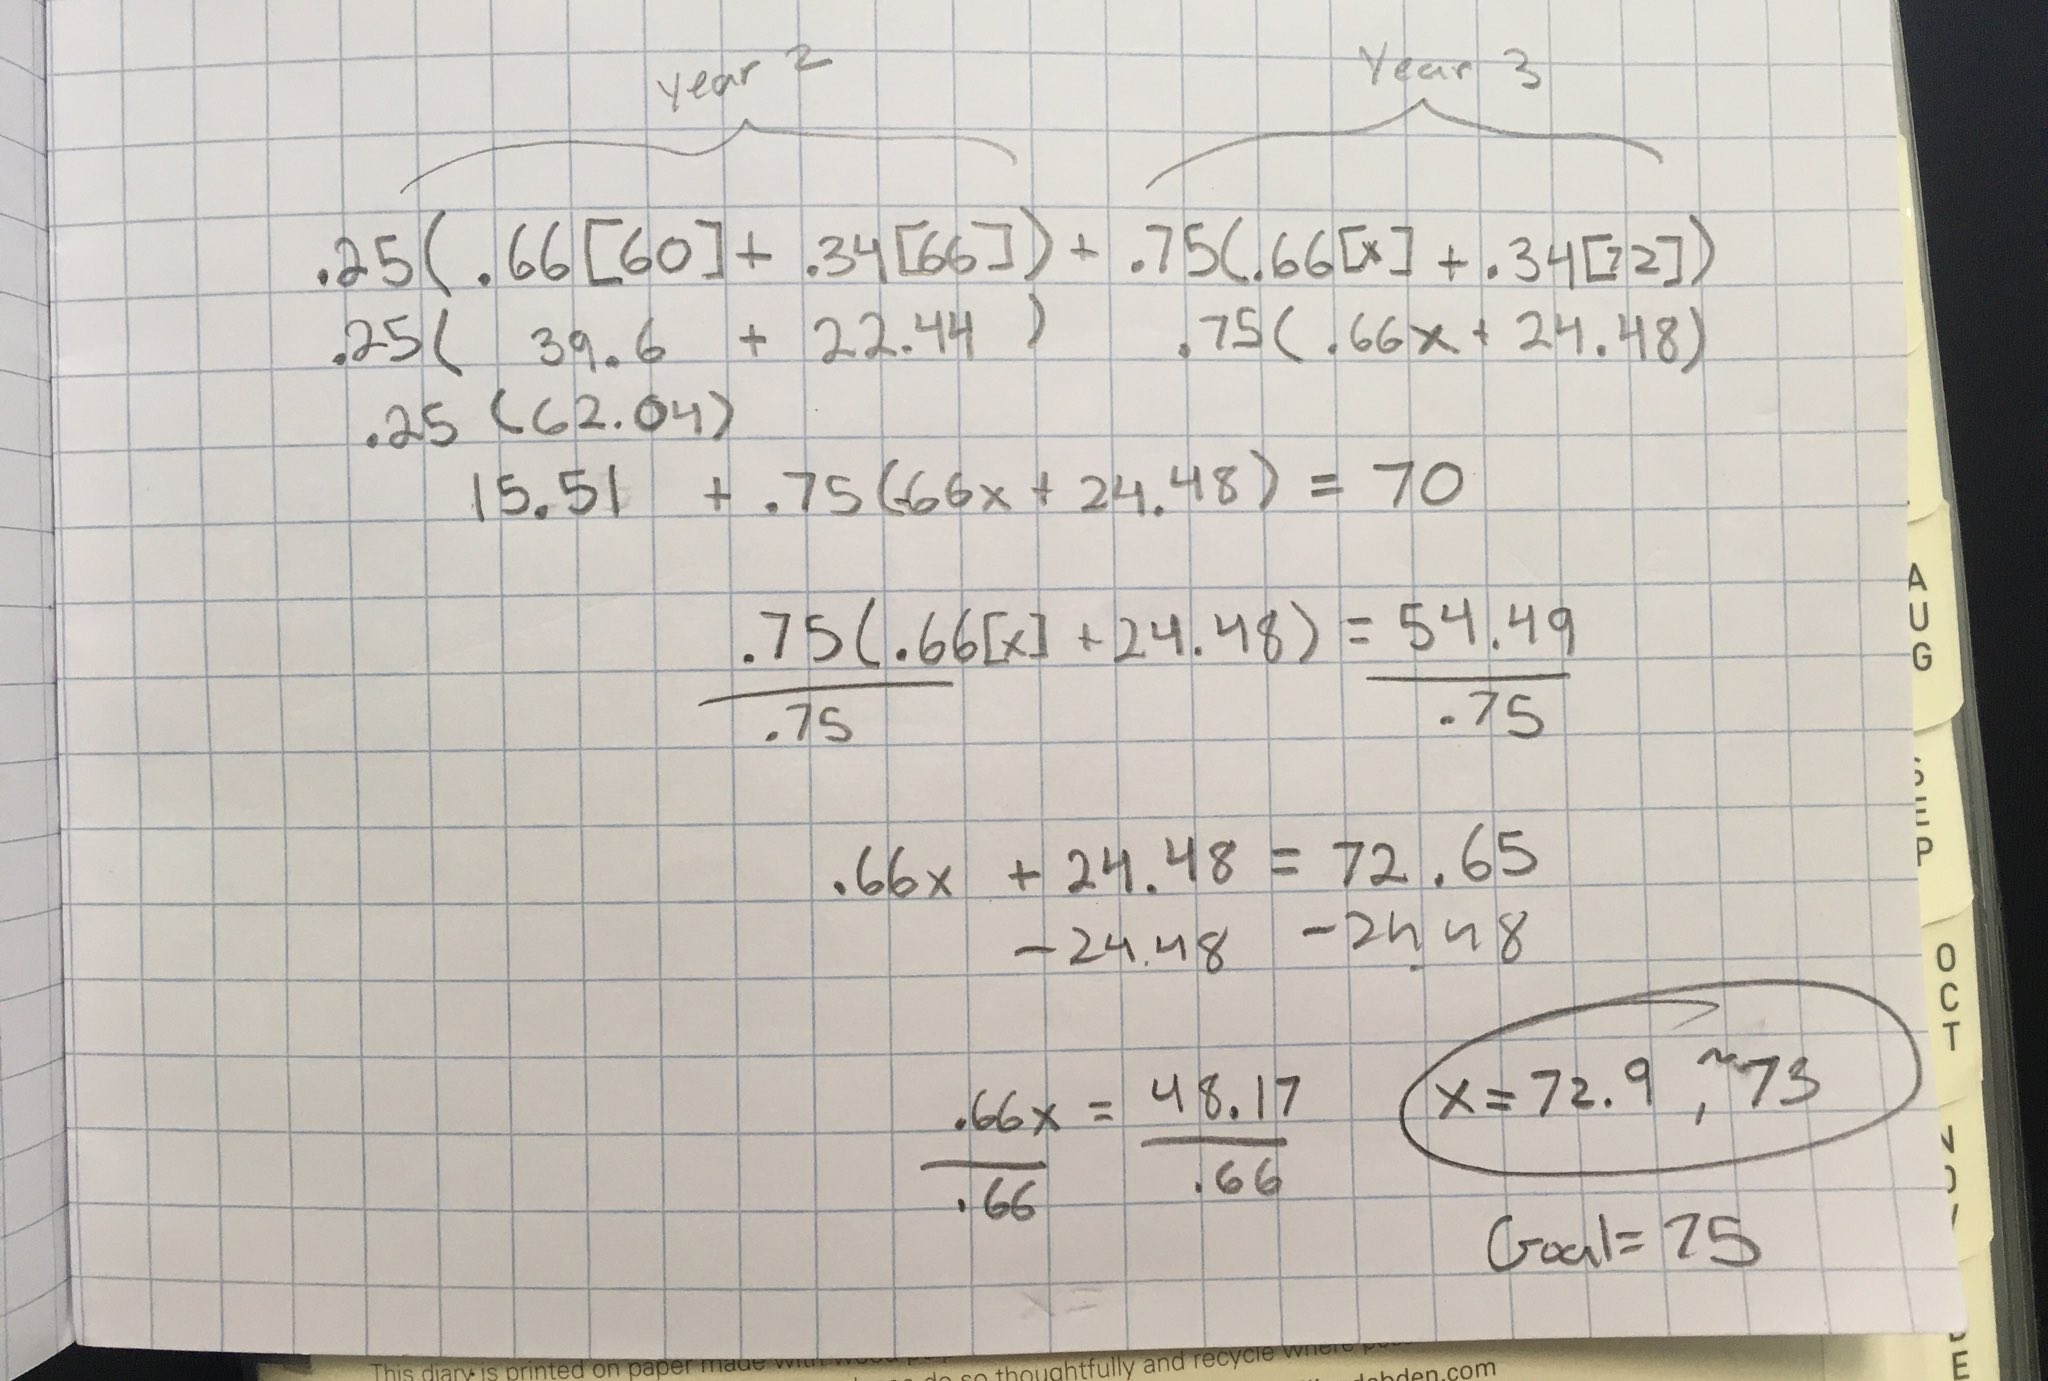 year 2 Year 3
.25(.66[60]+ .34[66]) + .75(.66[x] + .34[72])
.25( 39.6 + 22.44 ) .75(.66x + 24.48)
.25 (62.04)
15.51 + .75(.66x + 24.48) = 70
.75(.66[x] + 24.48) = 54.49
.75 .75
.66x + 24.48 = 72.65
-24.48 -24.48
.66x = 48.17
.66 .66
x = 72.9, ~73
Goal = 75
x=
AUG
SEP
OCT
This diary is printed on paper made with
so thoughtfully and recycle where